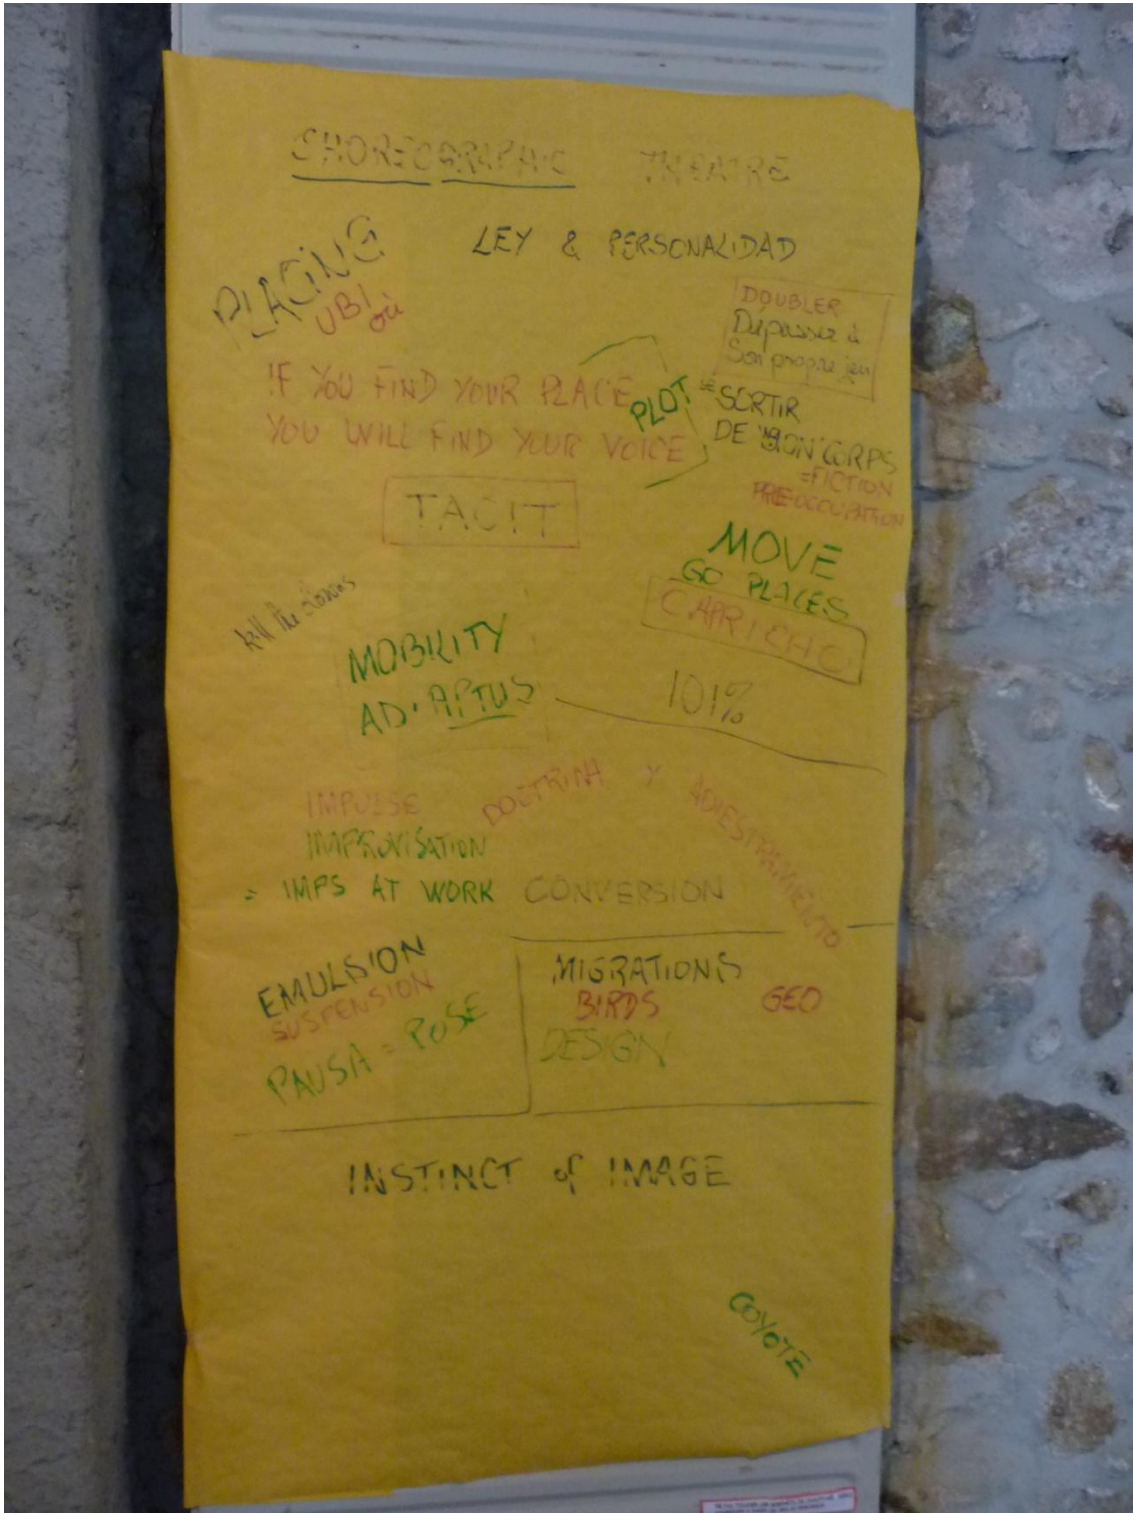 CHOREOGRAPHIC THEATRE
LEY & PERSONALIDAD
PLACING
UBI
où
DOUBLER
Dépasser à
Son propre jeu
IF YOU FIND YOUR PLACE
YOU WILL FIND YOUR VOICE
PLOT
= SORTIR
DE "SON" CORPS
=FICTION
PRE-OCCUPATION
TACIT
MOVE
GO PLACES
CAPRICHO
kill the
MOBILITY
AD'APTUS
101%
IMPULSE
IMPROVISATION
= IMPS AT WORK
DOCTRINA Y ADIESTRAMIENTO
CONVERSION
EMULSION
SUSPENSION
PAUSA = POSE
MIGRATIONS
BIRDS GEO
DESIGN
INSTINCT of IMAGE
COYOTE